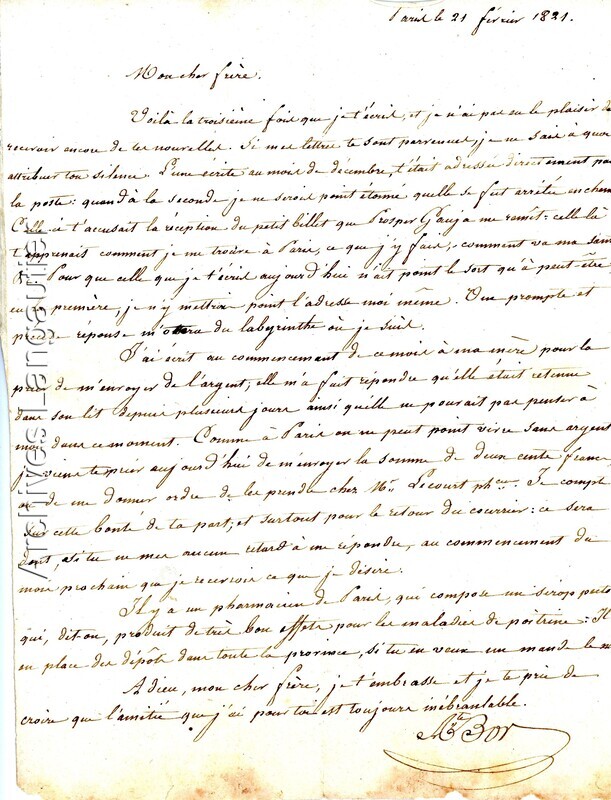 Paris le 21 février 1821.
Mon cher frère.
Voilà la troisième fois que je t'écris, et je n'ai pas eu le plaisir de
recevoir encore de tes nouvelles. Si mes lettres te sont parvenues, je ne sais à quoi
attribuer ton silence. L'une écrite au mois de décembre, t'était adressée directement par
la poste: quand à la seconde je ne serois point étonné quelle se fut arrêtée en chem
Celle là t'accusait la réception du petit billet que Prosper Gauja me remit: celle là
t'apprenais comment je me trouve à Paris, ce que j'y fais, comment va ma san
Pour que celle que je t'écris aujourd'hui n'ait point le sort qu'à peut-être
eu première, je n'y mettrai point l'adresse moi même. Une prompte et
réponse m'otera du labyrinthe où je suis.
J'ai écrit au commencement de ce mois à ma mère pour la
prier de m'envoyer de l'argent, elle m'a fait répondre qu'elle était retenue
dans son lit depuis plusieurs jours ainsi qu'elle ne pourait pas penser à
moi dans ce moment. Comme à Paris on ne peut point vivre sans argent
je viens te prier aujourd'hui de m'envoyer la somme de deux cents francs
ou de me donner ordre de les prendre chez Mr. Lecourt phcien Je compte
sur cette bonté de ta part, et surtout pour le retour du courrier: ce sera
donc, si tu ne mes aucun retard à me répondre, au commencement du
mois prochain que je recevrai ce que je désire.
Il y a un pharmacien de Paris, qui compose un sirop
qui, dit-on, produit de très bon effets pour les maladies de poitrine. Il
en place des dépôts dans toute la province, si tu en veux un mande le m
Adieu, mon cher frère, je t'embrasse et je te prie de
croire que l'amitié que j'ai pour toi est toujours inébranlable.
Bor
Archives Langautier